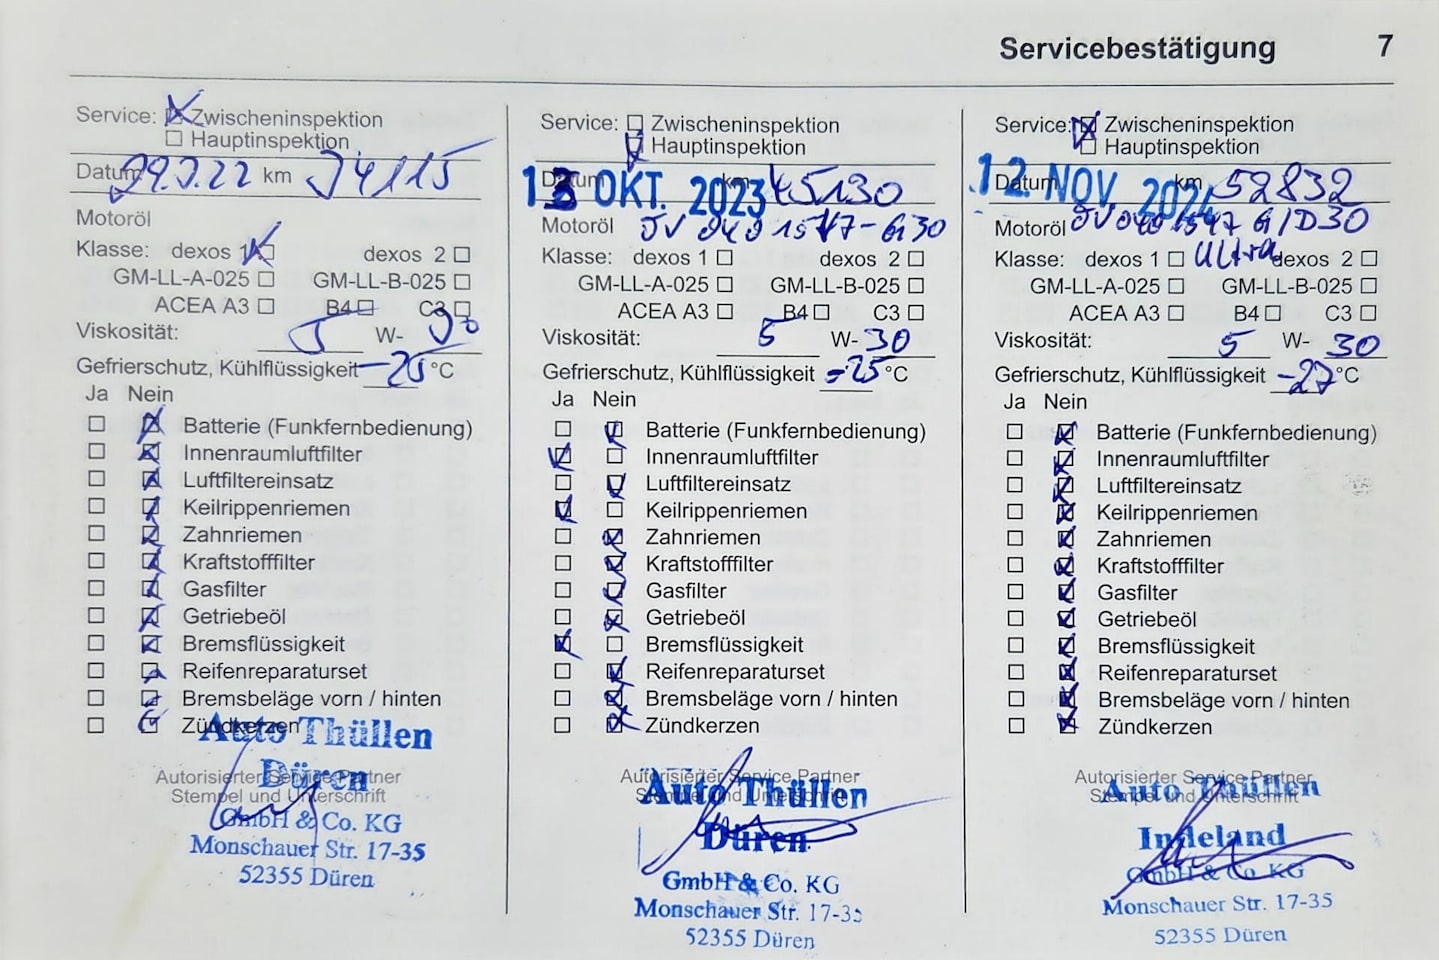 Servicebestätigung 7
Service: Zwischeninspektion
Hauptinspektion
Datum 29.7.22 km 34115
Motoröl
Klasse: dexos 1 dexos 2
GM-LL-A-025 GM-LL-B-025
ACEA A3 B4 C3
Viskosität: 5 W- 30
Gefrierschutz, Kühlflüssigkeit -25 °C
Ja Nein
Batterie (Funkfernbedienung)
Innenraumluftfilter
Luftfiltereinsatz
Keilrippenriemen
Zahnriemen
Kraftstofffilter
Gasfilter
Getriebeöl
Bremsflüssigkeit
Reifenreparaturset
Bremsbeläge vorn / hinten
Zündkerzen
Autorisierter Service Partner
Stempel und Unterschrift
Auto Thüllen
Düren
GmbH & Co. KG
Monschauer Str. 17-35
52355 Düren
Service: Zwischeninspektion
Hauptinspektion
Datum OKT. 2023 km 45130
Motoröl OV 040 1547-G30
Klasse: dexos 1 dexos 2
GM-LL-A-025 GM-LL-B-025
ACEA A3 B4 C3
Viskosität: 5 W- 30
Gefrierschutz, Kühlflüssigkeit -25 °C
Ja Nein
Batterie (Funkfernbedienung)
Innenraumluftfilter
Luftfiltereinsatz
Keilrippenriemen
Zahnriemen
Kraftstofffilter
Gasfilter
Getriebeöl
Bremsflüssigkeit
Reifenreparaturset
Bremsbeläge vorn / hinten
Zündkerzen
Autorisierter Service Partner
Stempel und Unterschrift
Auto Thüllen
Düren
GmbH & Co. KG
Monschauer Str. 17-35
52355 Düren
Service: Zwischeninspektion
Hauptinspektion
Datum 12. NOV. 2024 km 52832
Motoröl OV 040 1547 G/D30
Klasse: dexos 1 Ultra dexos 2
GM-LL-A-025 GM-LL-B-025
ACEA A3 B4 C3
Viskosität: 5 W- 30
Gefrierschutz, Kühlflüssigkeit -27 °C
Ja Nein
Batterie (Funkfernbedienung)
Innenraumluftfilter
Luftfiltereinsatz
Keilrippenriemen
Zahnriemen
Kraftstofffilter
Gasfilter
Getriebeöl
Bremsflüssigkeit
Reifenreparaturset
Bremsbeläge vorn / hinten
Zündkerzen
Autorisierter Service Partner
Stempel und Unterschrift
Auto Thüllen
Indeland
GmbH & Co. KG
Monschauer Str. 17-35
52355 Düren